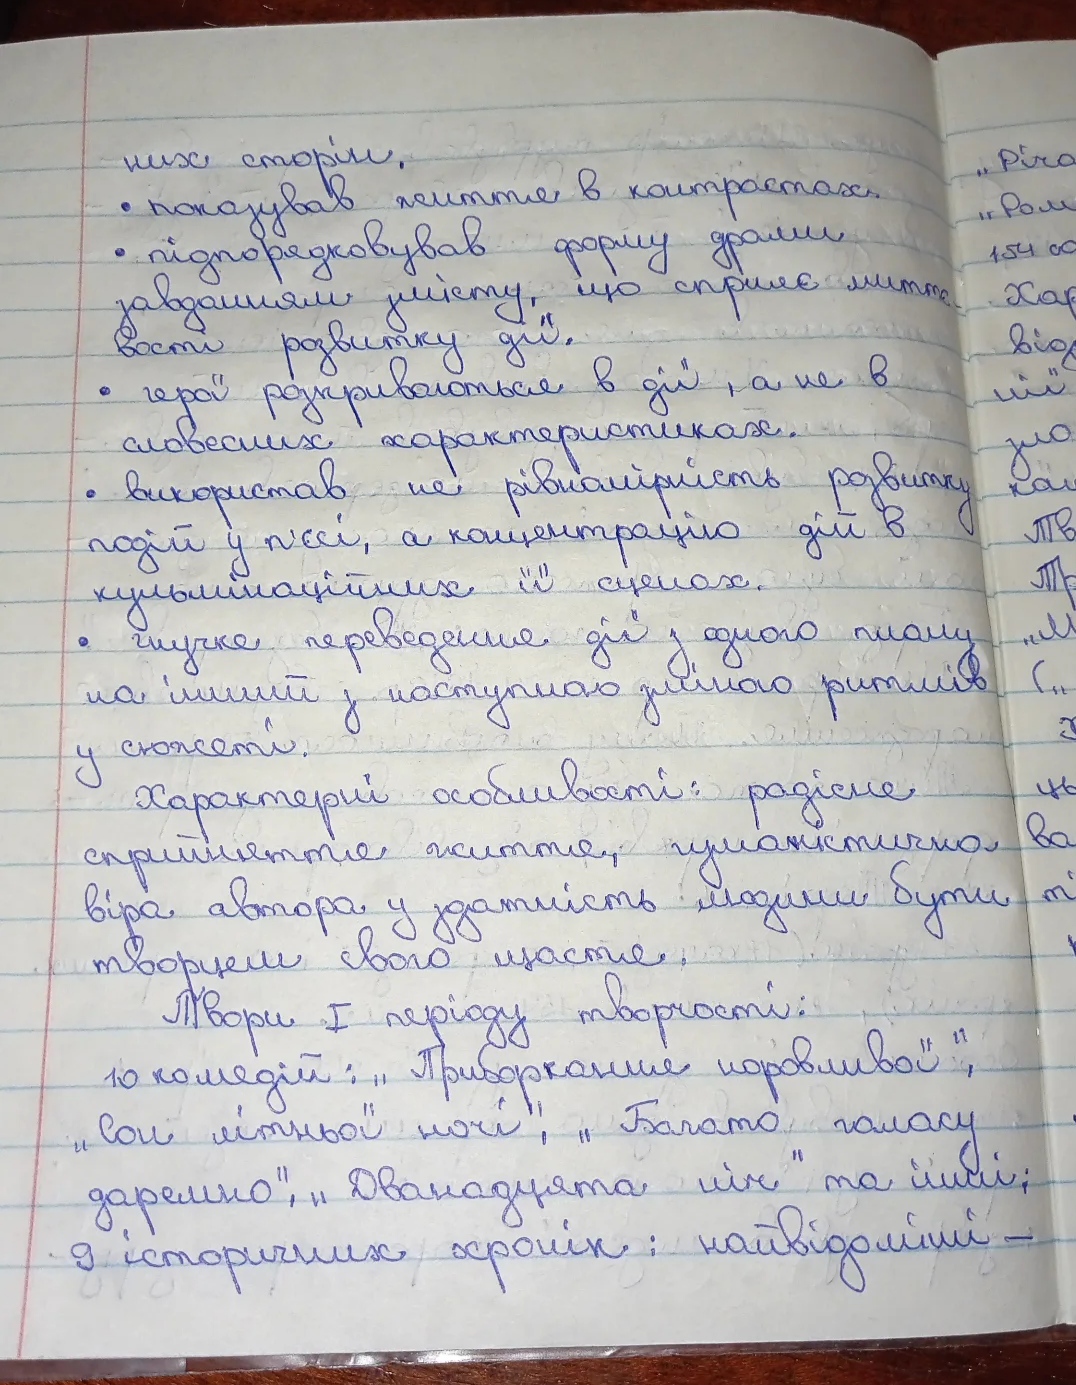 них сторін.
• показував життя в контрастах.
• підпорядковував форму драми
завданням змісту, що сприяє миттє
вості розвитку дії.
• герої розкриваються в дії, а не в
словесних характеристиках.
• використав не рівномірність розвитку
подій у п'єсі, а концентрацію дій в
кульмінаційних її сценах.
• гнучке переведення дії з одного плану
на інший з наступною зміною ритмів
у сюжеті.
Характерні особливості: радісне
сприйняття життя, гуманістична
віра автора у здатність людини бути
творцем свого щастя.
Твори I періоду творчості:
10 комедій: „Приборкання норовливої",
„Сон літньої ночі", „Багато галасу
даремно", „Дванадцята ніч" та інші;
9 історичних хронік: найвідоміші –
„Річа
„Ром
154 со
Хар
від
ній
зло
кан
Тв
Тр
„М
(„
Х
ць
ва
ті